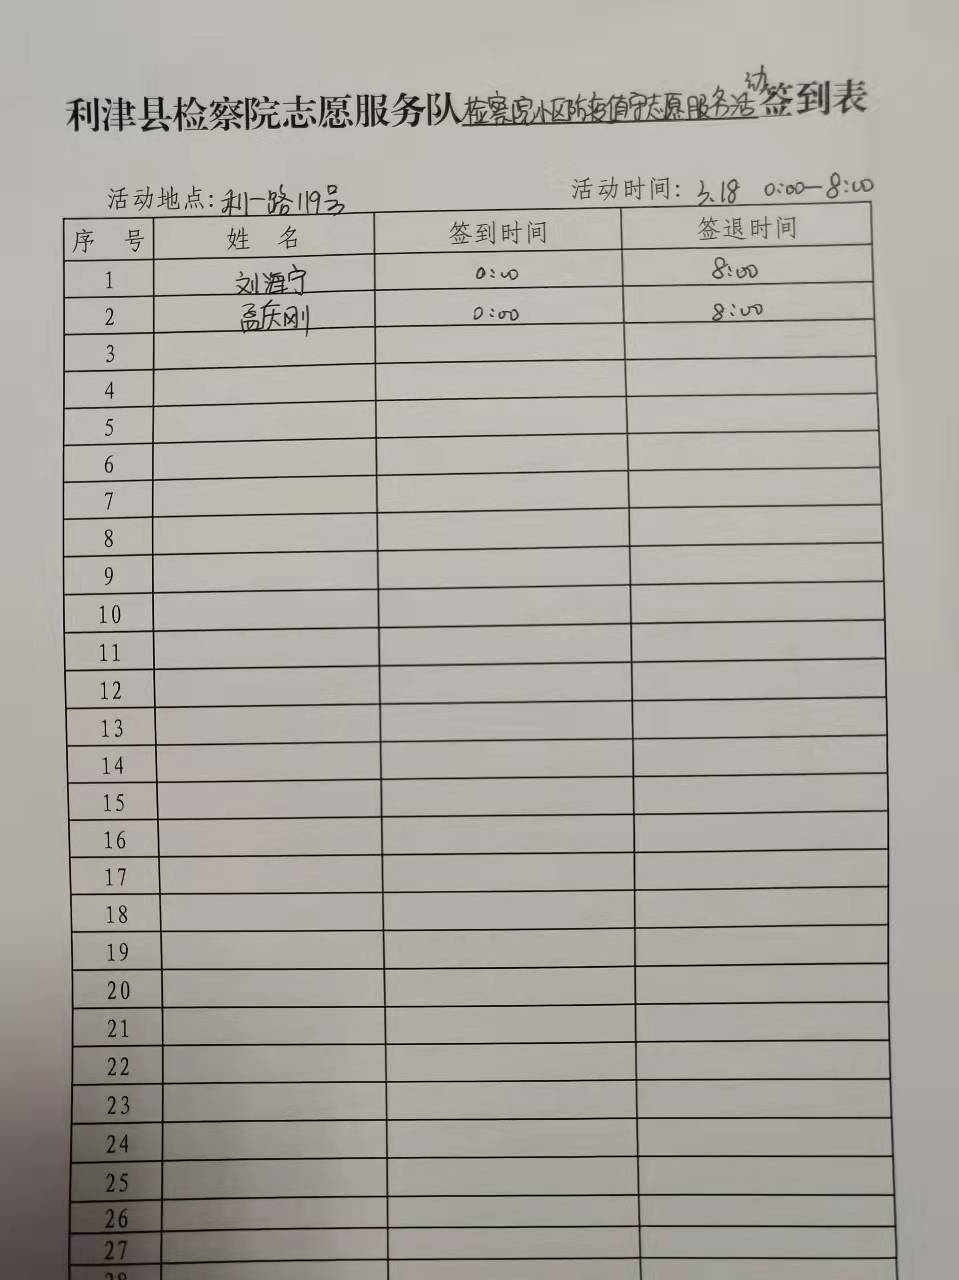 利津县检察院志愿服务队检察院小区防疫值守志愿服务活动签到表
活动地点:利一路119号 活动时间: 3.18 0:00-8:00
序 号 姓 名 签到时间 签退时间
1 刘海宁 0:00 8:00
2 孟庆刚 0:00 8:00
3
4
5
6
7
8
9
10
11
12
13
14
15
16
17
18
19
20
21
22
23
24
25
26
27
28